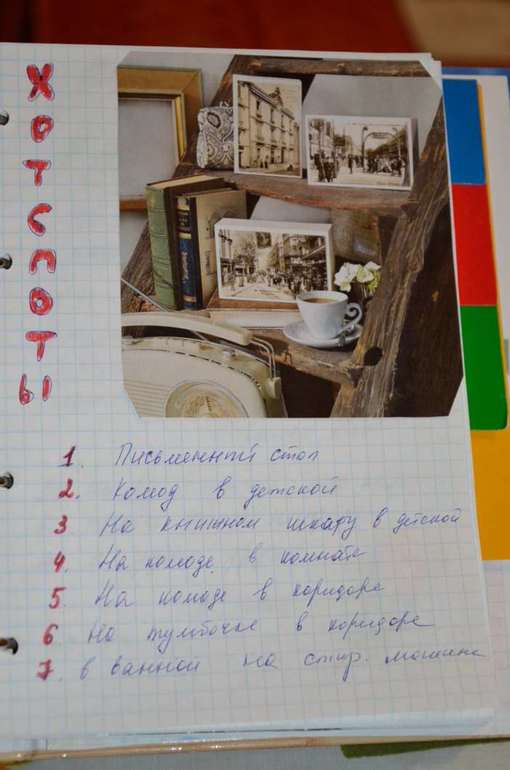 ХОТСПОТЫ
1. Письменный стол
2. Комод в детской
3 На книжном шкафу в детской
4. На комоде в комнате
5. На комоде в коридоре
6 На тумбочке в коридоре
7. в ванной на стир. машине